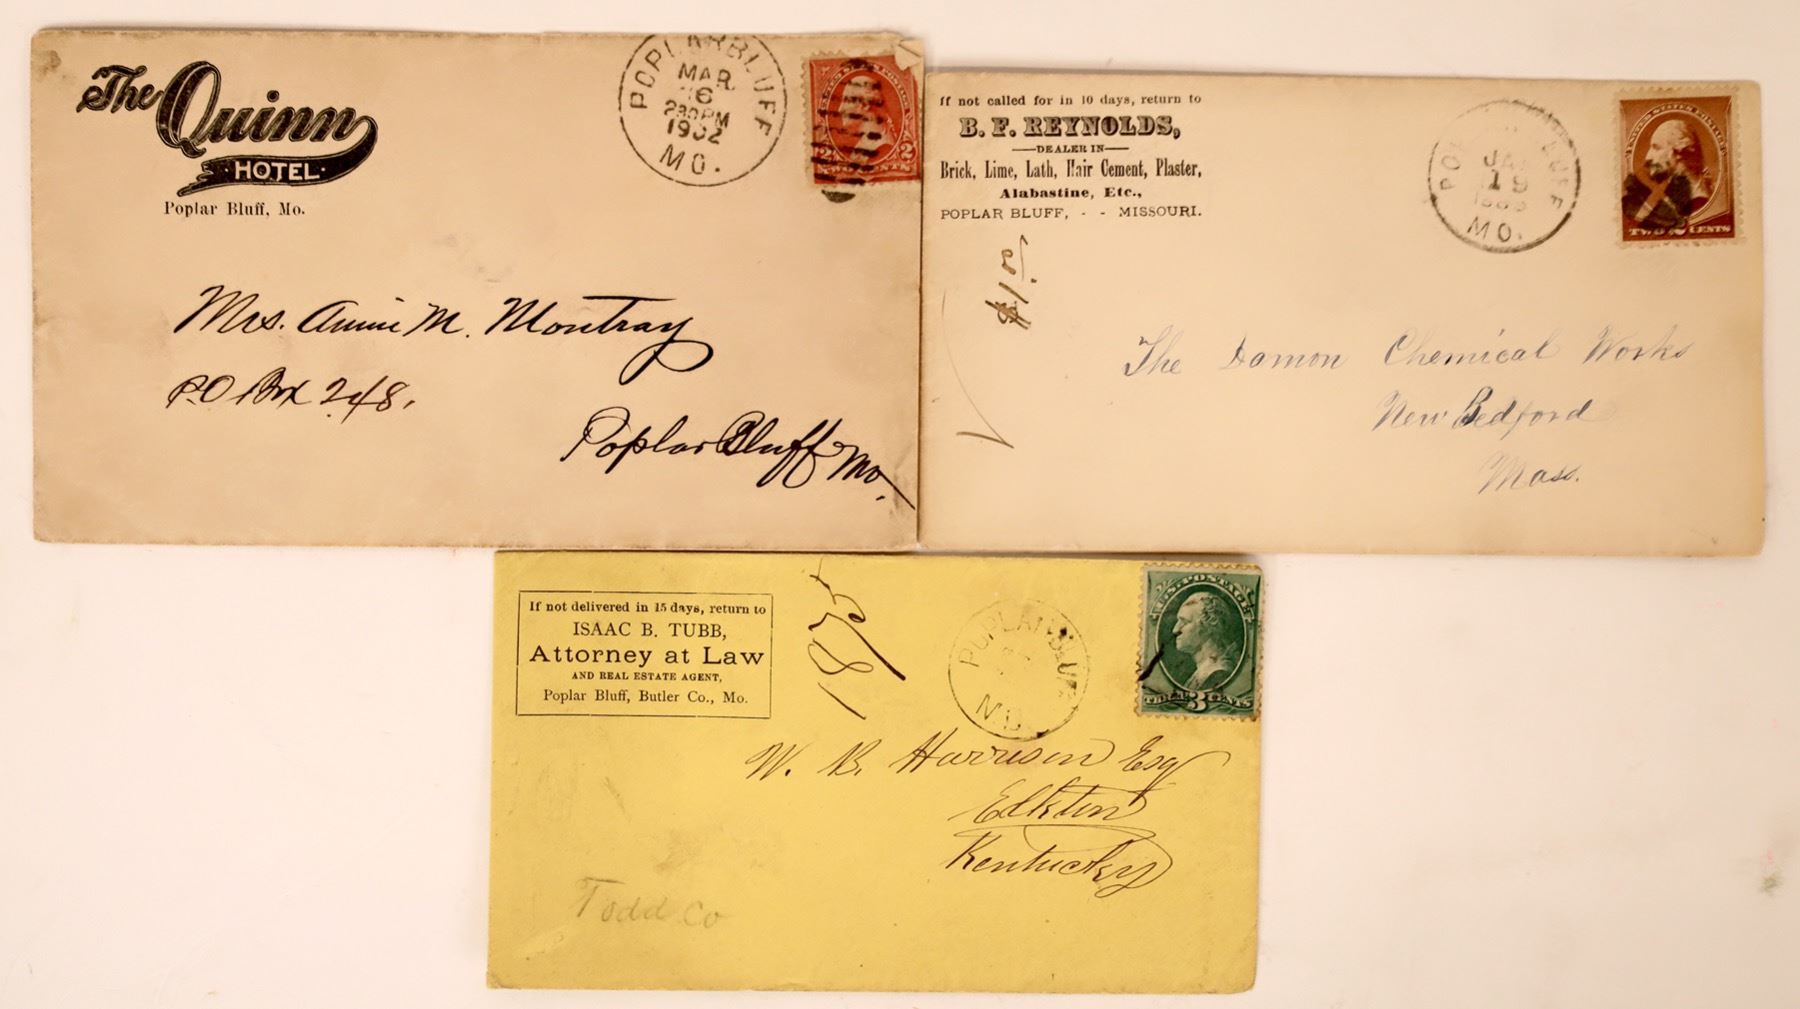 The Quinn
HOTEL
Poplar Bluff, Mo.
POPLAR BLUFF
MAR
16
230PM
1902
MO.
UNITED STATES POSTAGE
2 2
TWO CENTS
Mrs. Annie M. Montray
P.O Box 248.
Poplar Bluff Mo.
If not called for in 10 days, return to
B. F. REYNOLDS,
DEALER IN
Brick, Lime, Lath, Hair Cement, Plaster,
Alabastine, Etc.,
POPLAR BLUFF, - - MISSOURI.
BLUFF
JAN
19
MO.
UNITED STATES POSTAGE
TWO 2 CENTS
The Damon Chemical Works
New Bedford
Mass.
If not delivered in 15 days, return to
ISAAC B. TUBB,
Attorney at Law
AND REAL ESTATE AGENT,
Poplar Bluff, Butler Co., Mo.
POPLAR BLUFF
MO.
U.S. POSTAGE
THREE 3 CENTS
W. B. Harrison Esq
Elkton
Kentucky
Todd Co